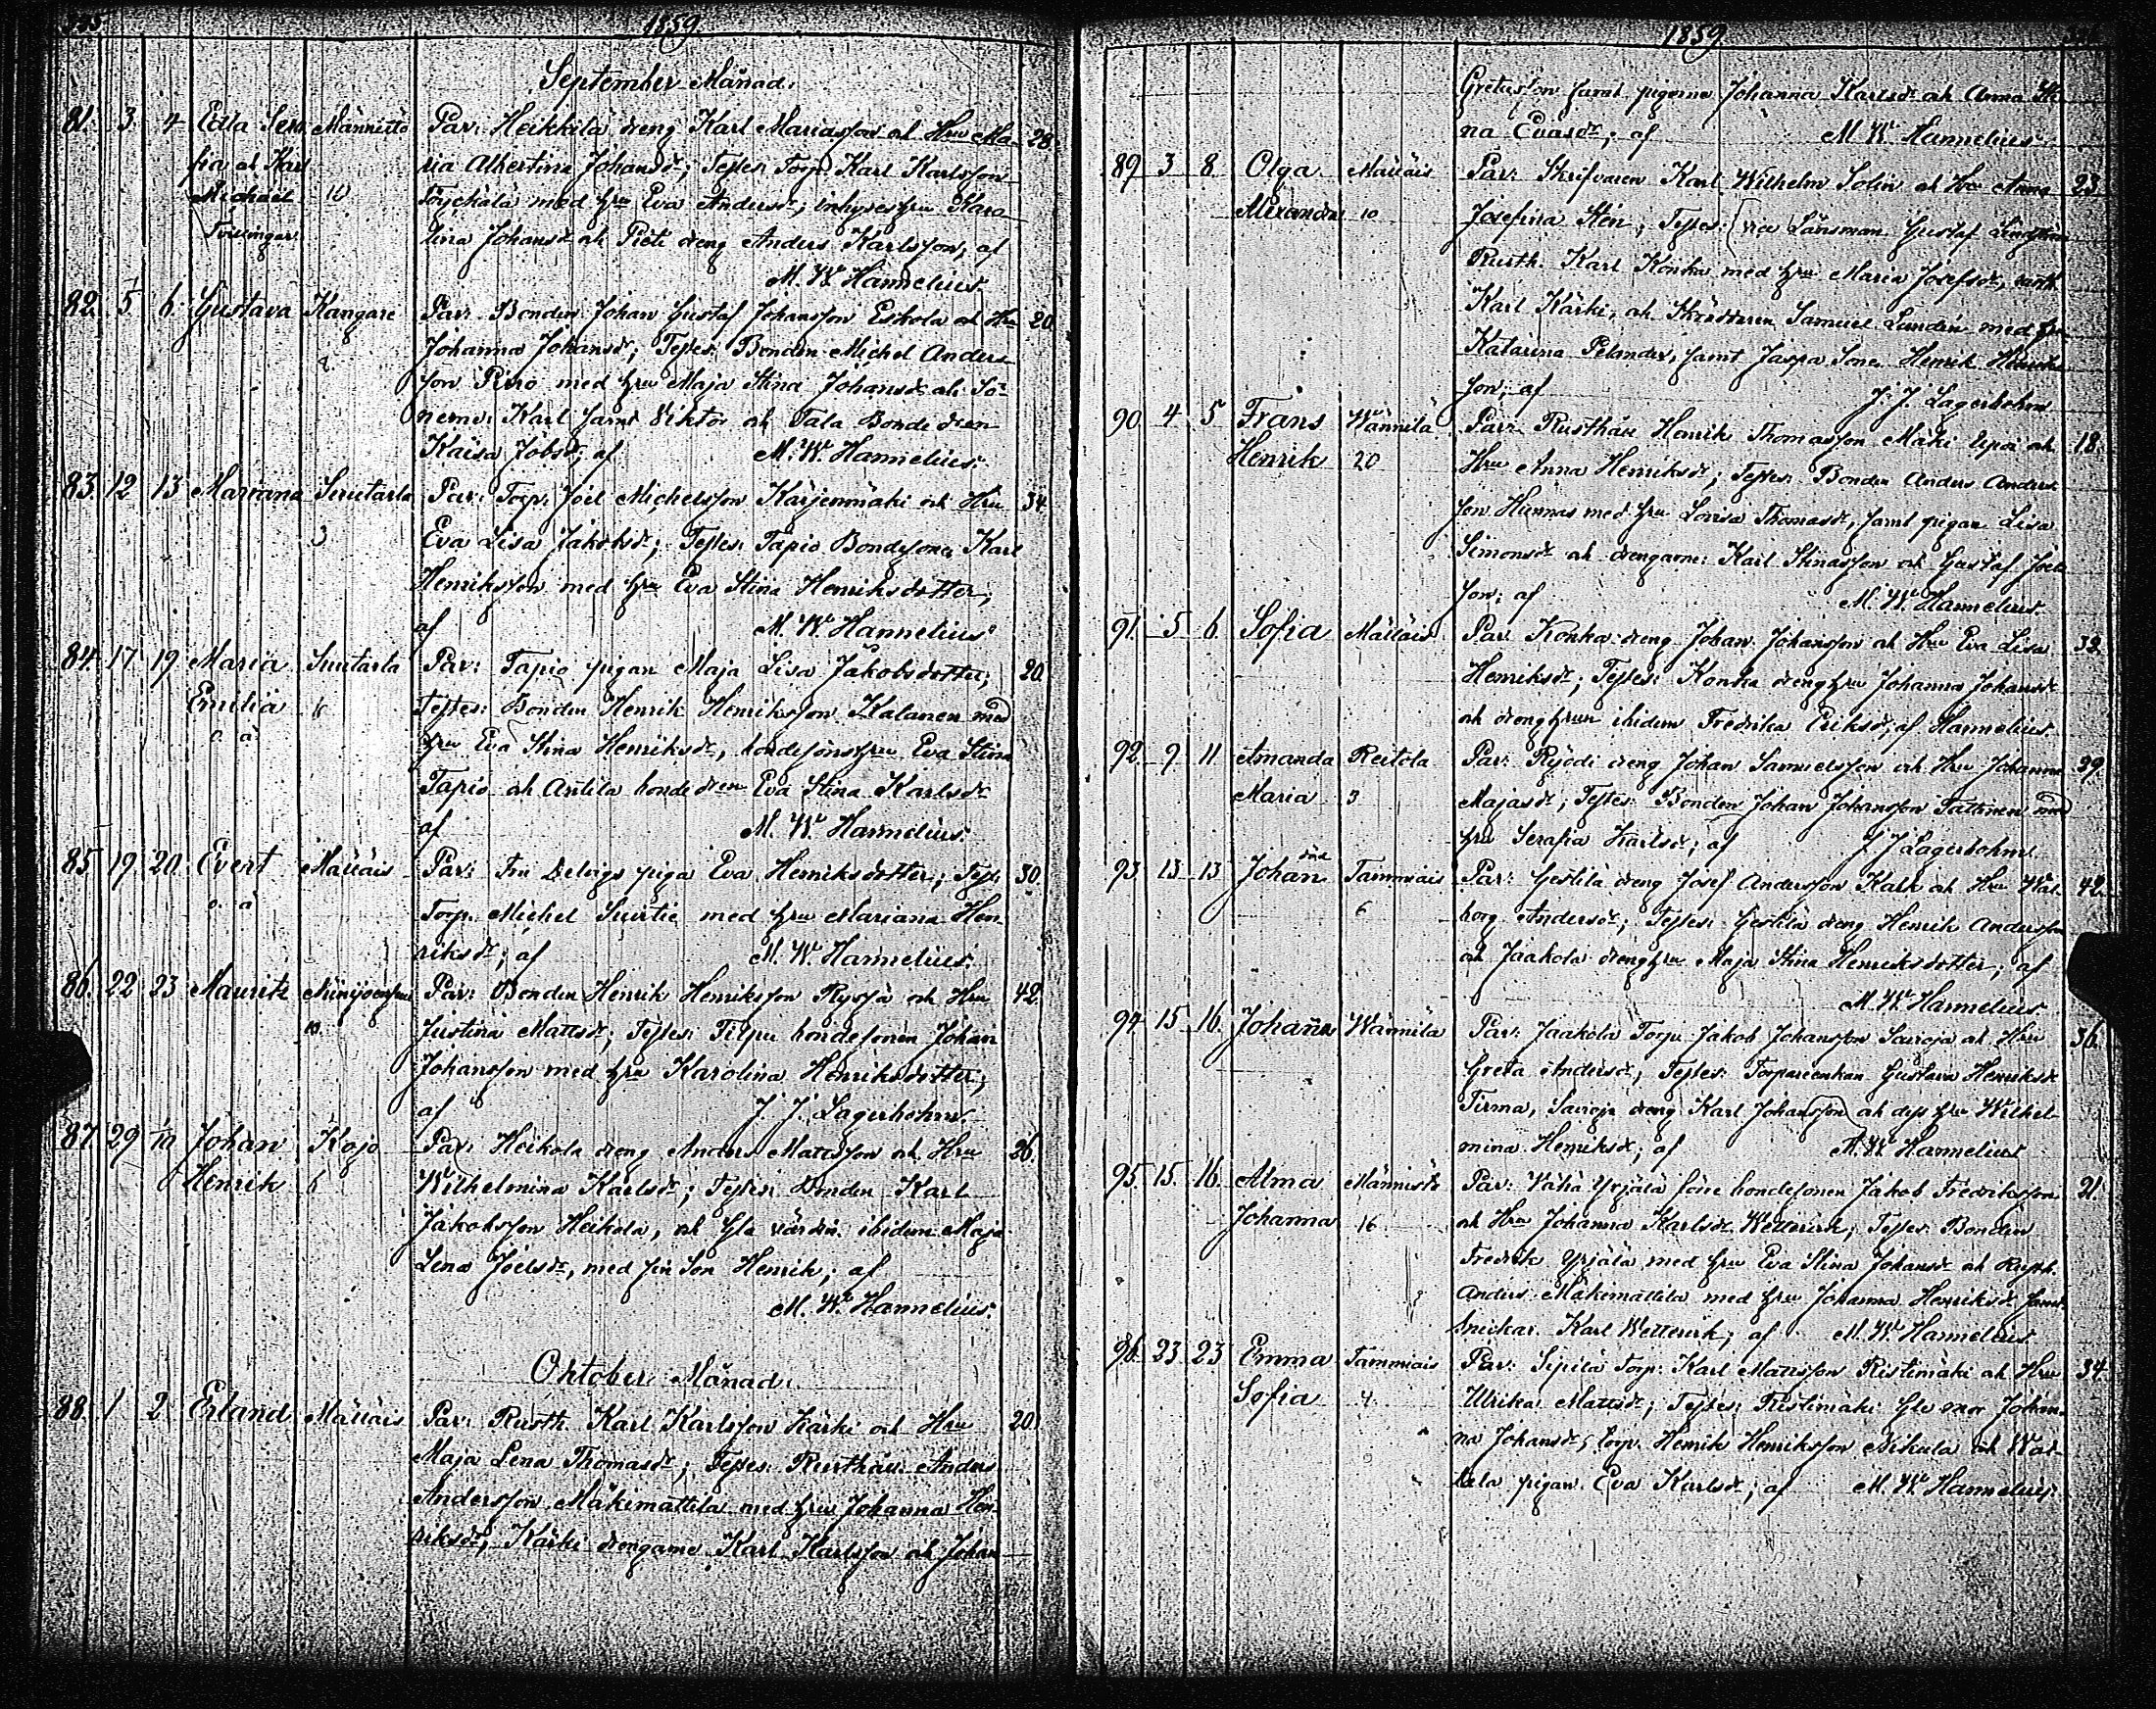 1859
September Månad.
81. 3 4 Edla Sera- Männistö Par: Heikkilä dreng Karl Mariasson och Hru Ma- 28.
fia och Karl ria Albertina Johansdr; Testes: Torp. Karl Karlsson
Michaël med hru Eva Andersdr; inhyses hru Karo-
Tvillingar lina Johansdr och dreng Anders Karlsson; af
M. W. Hannelius.
82. 5 6 Gustava Kangare Par: Bonden Johan Gustaf Johansson Eskola och Hru 20.
Johanna Johansdr; Testes: Bonden Michel Anders-
son med hru Maja Stina Johansdr och Sö-
nerne: Karl samt Viktor och Tala Bonde dren
Kaisa ; af M. W. Hannelius.
83. 12 13 Mariana Suutarla Par: Torp. Joel Michelsson Karjenmäki och Hru 34.
3 Eva Lisa Jakobsdr; Testes: Tapio Bondesonen Karl
Henriksson med hru Eva Stina Henriksdotter;
af M. W. Hannelius.
84. 17 19 Maria Suutarla Par: Tapio pigan Maja Lisa Jakobsdotter; 20.
Emilia Testes: Bonden Henrik Henriksson Kalanen med
o. ä. hru Eva Stina Henriksdr, bondesonshru Eva Stina
Tapio och Antila bonde dren Eva Stina Karlsdr
af M. W. Hannelius.
85. 19 20 Evert Mälläis Par: Fru piga Eva Henriksdotter; Test: 30.
o. ä. Torp. Michel med hru Mariana Hen-
riksdr; af M. W. Hannelius.
86. 22 23 Maurits Niinijoensuu Par: Bonden Henrik Henriksson och Hru 42.
10. Justina Mattsdr; Testes: Tilpu bondesonen Johan
Johansson med hru Karolina Henriksdotter;
af J. J. Lagerbohm.
87. 29 Johan Kojo Par: Heikola dreng Anders Mattsson och Hru 26.
Henrik 6 Wilhelmina Karlsdr; Testes: Bonden Karl
Jakobsson Heikola, och Gla värdin. ibidem Maja
Lena Joelsdr, med sin Son Henrik; af
M. W. Hannelius.
Oktober Månad.
88. 1 2 Erland Mälläis Par: Rusth. Karl Karlsson Kärki och Hru 20.
Maja Lena Thomasdr; Testes: Rusthåll. Anders
Andersson Mäkimattila med hru Johanna Hen-
riksdr; Kärki drengarne Karl Karlsson och Johan
1859
Gretasson samt pigorna Johanna Karlsdr och Anna Sti-
na Evasdr; af M. W. Hannelius.
89. 3 8 Olga Mälläis Par: Skrifvaren Karl Wilhelm Solin och Hru Anna 23.
Alexandra 10 Josefina Stén; Testes: vice Länsman Gustaf
Rusth. Karl Konka med hru Maria Josefsdr, rusth.
Karl Kärki, och Skräddaren Samuel Lundén med hru
Katarina Pelander, samt Jaspa Sone Henrik Henriks-
son; af J. J. Lagerbohm
90. 4 5 Frans Wännilä Par: Rusthåll. Henrik Thomasson Mäki och 18.
Henrik 20 Hru Anna Henriksdr; Testes: Bonden Anders Anders-
son med hru Lovisa Thomasdr, samt pigan Lisa
Simonsdr och drengarne: Karl Stinasson och Gustaf Joels-
son; af M. W. Hannelius.
91. 5 6 Sofia Mälläis Par: Konka dreng Johan Johansson och Hru Eva Lisa 32.
Henriksdr; Testes: Konka dreng hru Johanna Johansdr
och dreng hrun ibidem Fredrika Eriksdr; af Hannelius.
92. 9 11 Amanda Reitola Par: dreng Johan Samuelsson och Hru Johanna 39.
Maria 3 Majasdr; Testes: Bonden Johan Johansson Tattinen med
hru Serafia Karlsdr; af J J Lagerbohm.
93. 13 13 Johan Tammiais Par: Gertilä dreng Josef Andersson Kalk och Hru Wal- 42.
6 borg Andersdr; Testes: Gertilä dreng Henrik Andersson
och Jaakola dreng hru Maja Stina Henriksdotter; af
M. W. Hannelius
94. 15 16. Johanna Wännilä Par: Jaakola Torp. Jakob Johansson Sauoja och Hru 36.
Greta Andersdr; Testes: Torpareenkan Gustava Henriksdr
Tirma, Sauoja dreng Karl Johansson och dess hru Wilhel-
mina Henriksdr; af M. W. Hannelius
95. 15. 16. Alma Männistö Par: Vähä Yrjälä förre bondesonen Jakob Fredriksson 21.
Johanna 16 och Hru Johanna Karlsdr Wetterick; Testes: Bonden
Fredrik Yrjälä med hru Eva Stina Johansdr och Rusth.
Anders Mäkimattila med hru Johanna Henriksdr samt
Snickar. Karl Wetterick; af M. W. Hannelius.
96. 23 23 Emma Tammiais Par: Sipilä Torp. Karl Mattsson Ristimäki och Hru 34.
Sofia 4. Ulrika Mattsdr; Testes: Ristimäki Gla mor Johan-
na Johansdr; torp. Henrik Henriksson Nikula och Wal-
tala pigan Eva Karlsdr; af M. W. Hannelius.